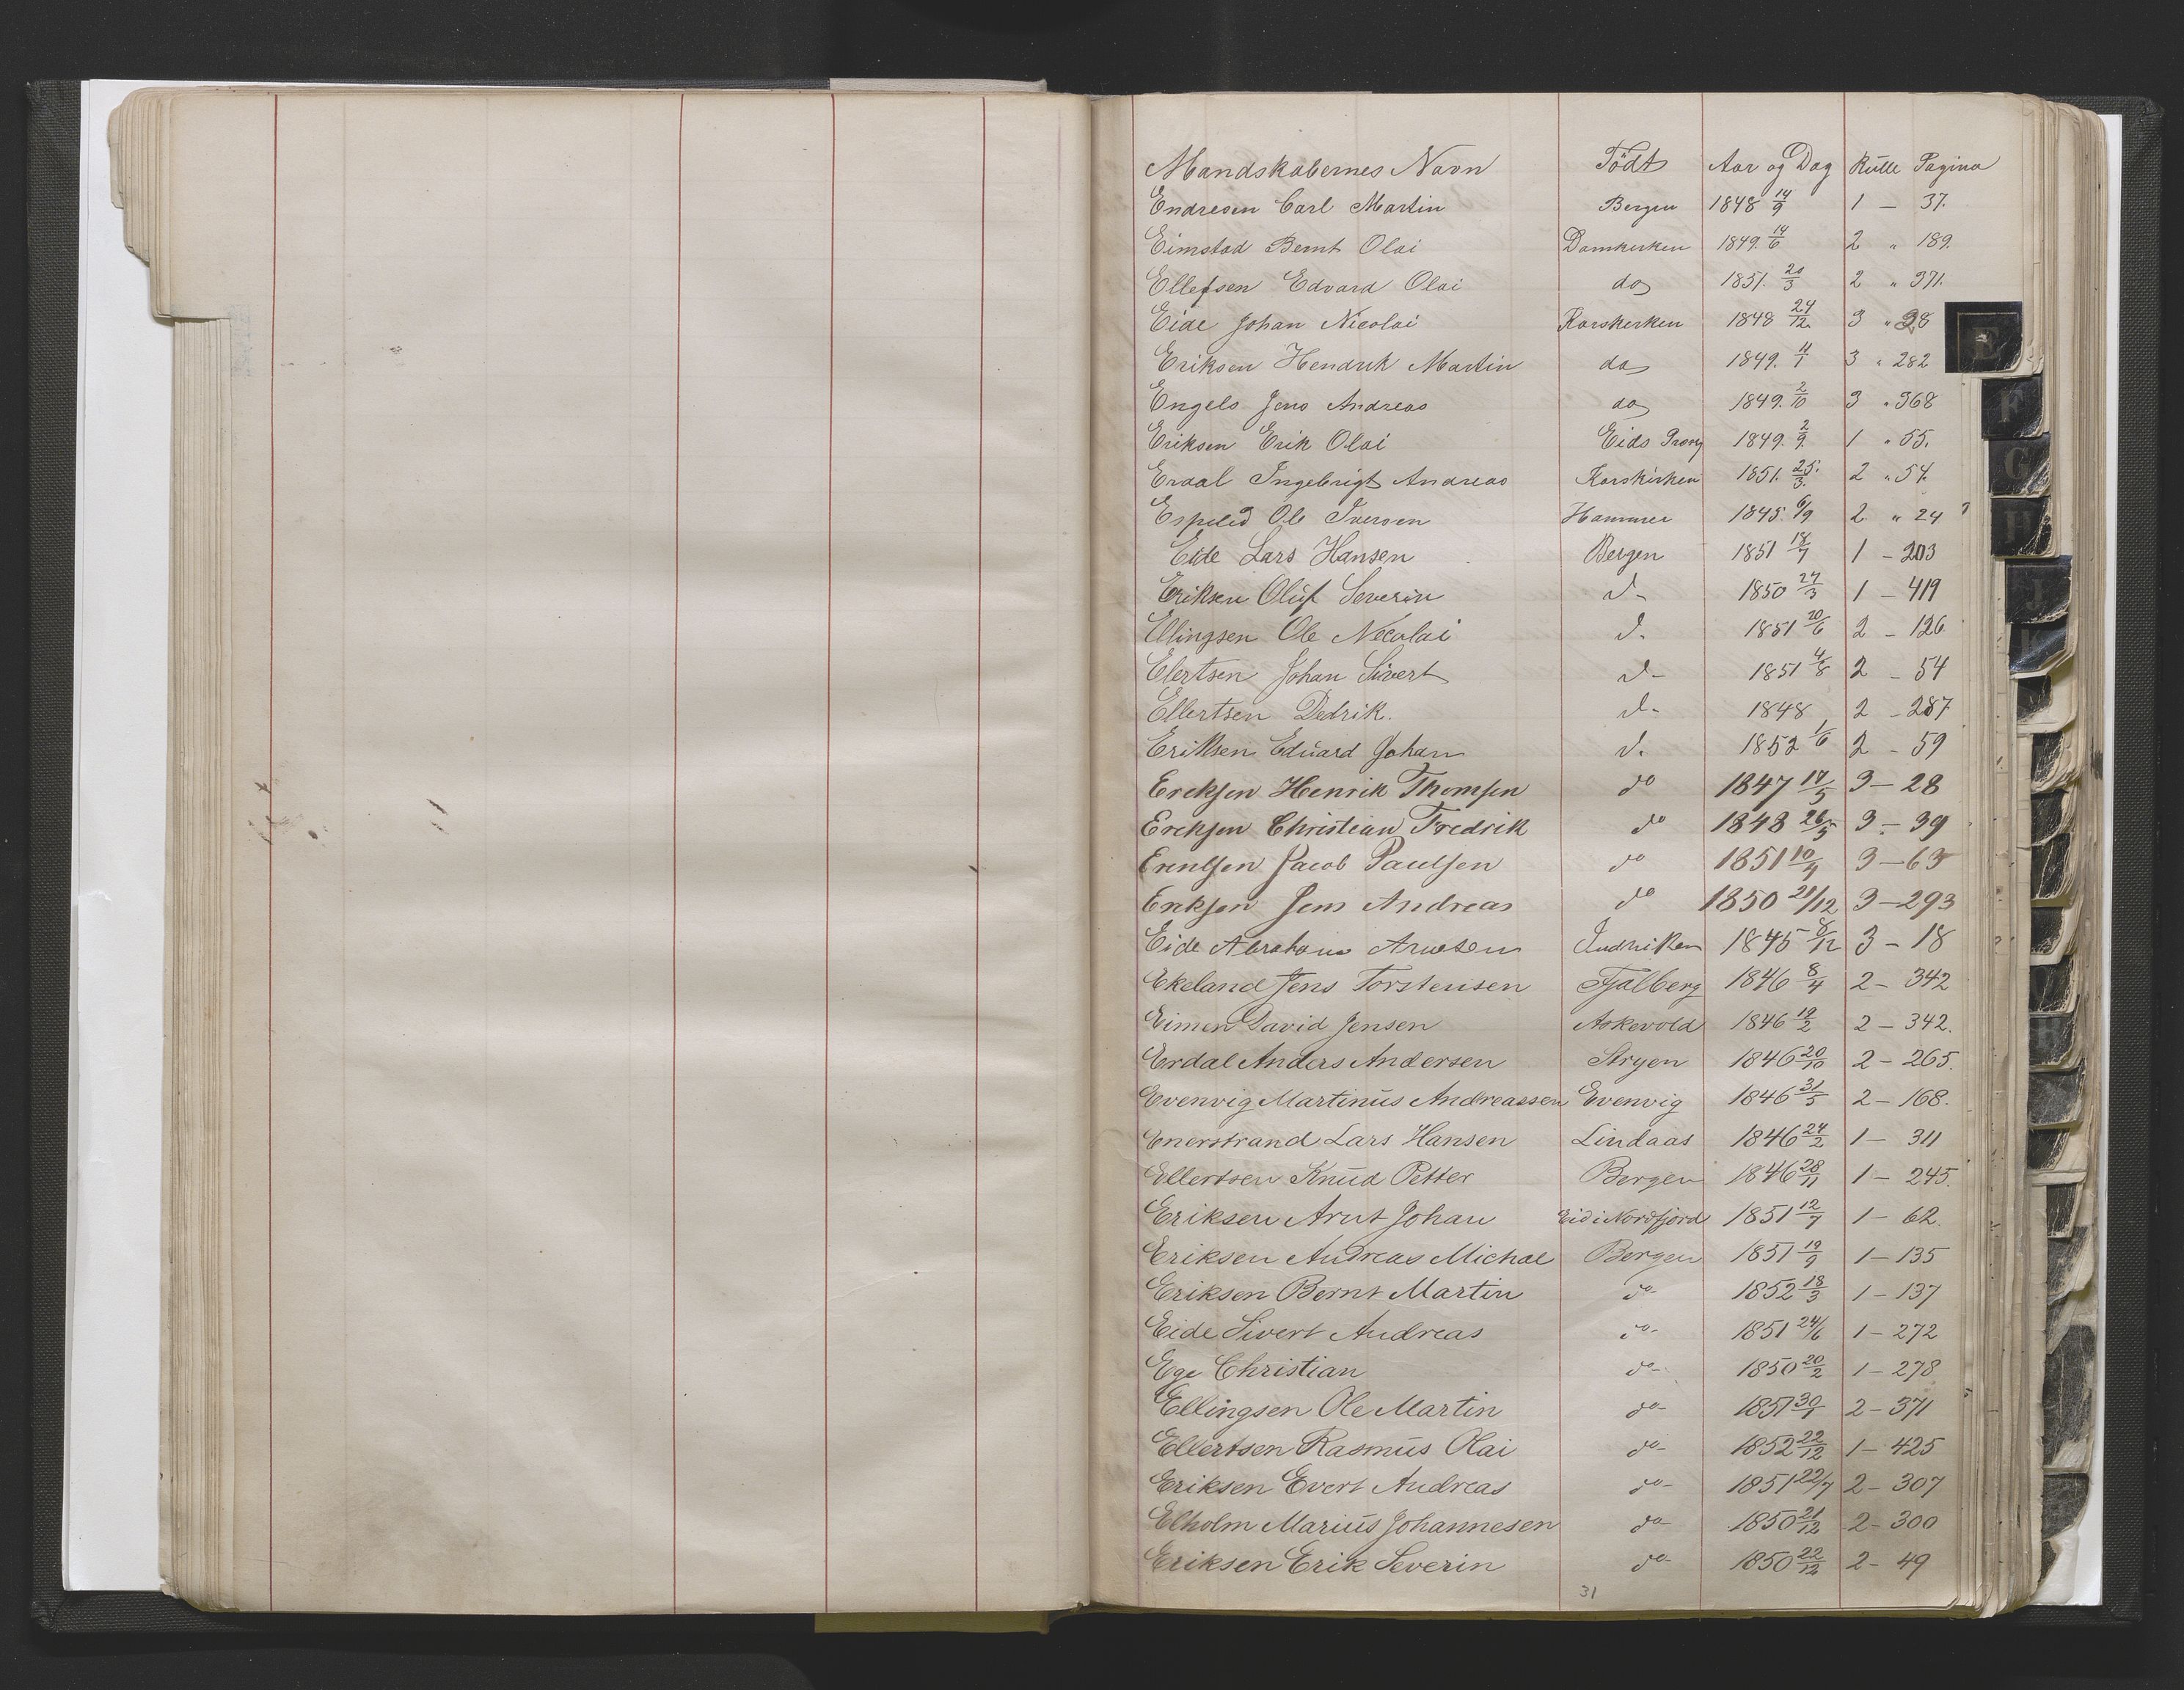 Mandskabernes Navn Födt Aar og Dag Rulle Pagina
Endresen Carl Martin Bergen 1848 14/9 1 — 37.
Eimstad Bernt Olai Domkirken 1849. 14/6 2 " 189.
Ellefsen Edvard Olai do 1851. 20/3 2 " 371.
Eide Johan Nicolai Korskerken 1848 24/12 3 " 38
Eriksen Hendrik Martin do 1849. 11/1 3 " 282
Engels Jens Andreas do 1849. 2/10 3 " 368
Eriksen Erik Olai Eids 1849. 2/9 1 " 55.
Erdal Ingebrigt Andreas Korskirken 1851. 25/3 2 " 54.
Espelid Ole Iversen Hammer 1845. 6/9 2 " 24
Eide Lars Hansen Bergen 1851 18/7 1 - 203
Eriksen Oluf Severin d- 1850 27/3 1 - 419
Ellingsen Ole Nicolai d. 1851 20/6 2 - 126
Elertsen Johan Sivert d- 1851 4/8 2 - 54
Ellertsen Dedrik. d- 1848 2 - 287
Eriksen Eduard Johan d. 1852 1/6 2 - 59
Ereksen Henrik Thomsen do 1847 17/5 3 - 28
Ereksen Christian Fredrik do 1848 26/5 3 - 39
Jacob Paulsen do 1851 10/4 3 - 63
Ereksen Jens Andreas do 1850 21/12 3 - 293
Eide Abraham Arnesen Indviken 1845 8/12 3 - 18
Ekeland Jens Torstensen Fjalberg 1846 8/4 2 - 342
Eimen David Jensen Askevold 1846 19/2 2 - 342.
Erdal Anders Andersen Stryen 1846 20/10 2 - 265.
Evenvig Martinus Andreassen Evenvig 1846 31/5 2 - 168.
Enerstrand Lars Hansen Lindaas 1846 24/2 1 - 311
Ellertsen Knud Petter Bergen 1846 28/11 1 - 245.
Eriksen Arnt Johan Eid i Nordfjord 1851 12/7 1 - 62.
Eriksen Andreas Michael Bergen 1851 19/9 1 - 135
Eriksen Bernt Martin do- 1852 18/3 1 - 137
Eide Sivert Andreas do- 1851 24/6 1 - 272
Ege Christian do- 1850 20/2 1 - 278
Ellingsen Ole Martin do- 1851 30/1 2 - 371
Ellertsen Rasmus Olai do- 1852 22/12 1 - 425
Eriksen Evert Andreas do- 1851 22/7 2 - 307
Elholm Marius Johannesen do- 1850 21/12 2 - 300
Eriksen Erik Severin do- 1850 22/12 2 - 49
31
E
F
G
H
J
K